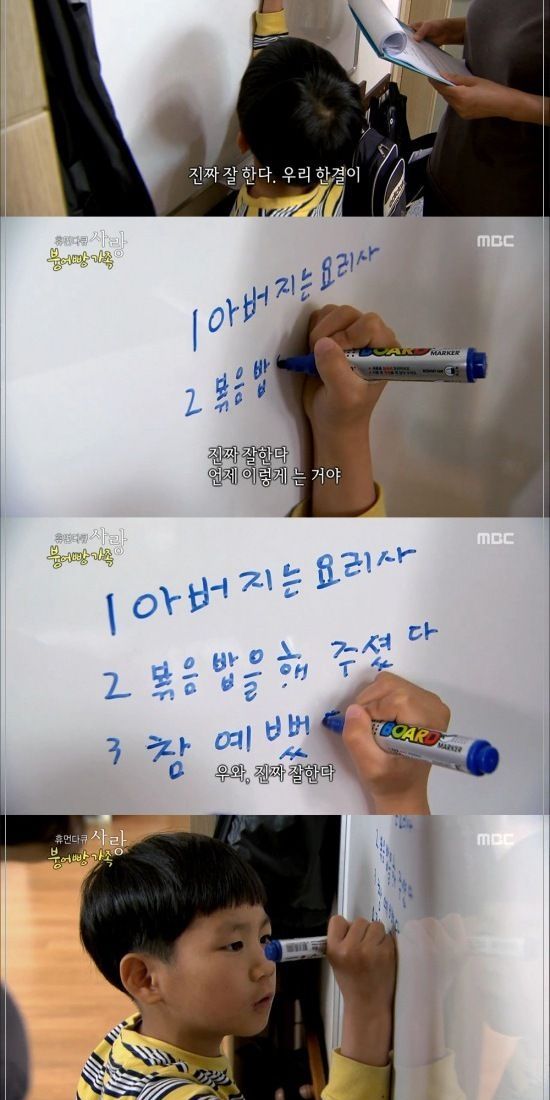 진짜 잘 한다. 우리 한결이
휴먼다큐 사랑
붕어빵 가족
MBC
1 아버지는 요리사
BOARD
MARKER
2 볶음밥
진짜 잘한다
언제 이렇게 는 거야
휴먼다큐 사랑
붕어빵 가족
MBC
1 아버지는 요리사
2 볶음밥을 해 주셨다
3 참 예뻤
BOARD
MARKER
우와, 진짜 잘한다
휴먼다큐 사랑
붕어빵 가족
MBC